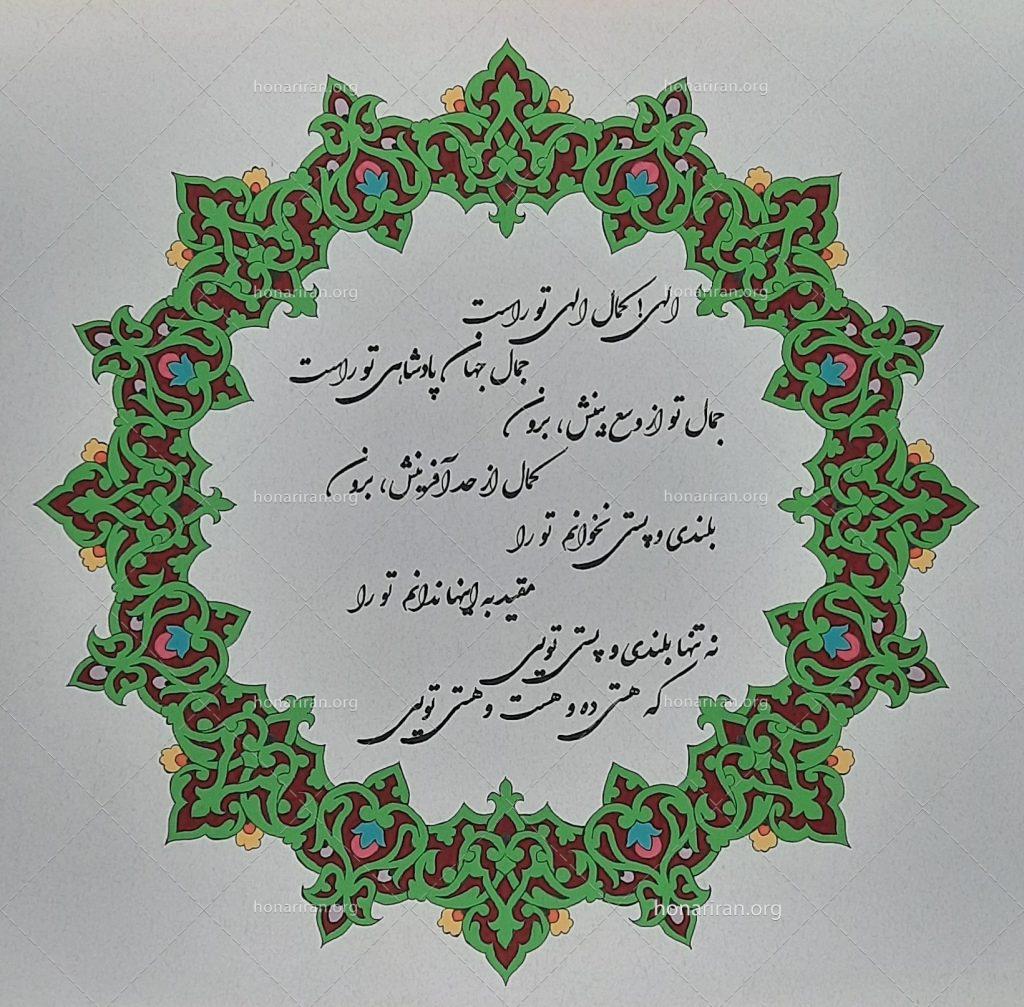 honariran.org honariran.org
الهی! کمال الهی تو راست
honariran.org honariran.org
جمال جهان پادشاهی تو راست
جمال تو از وسع بینش، برون
کمال از حد آفرینش، برون
honariran.org honariran.org
بلندی و پستی نخوانم تو را
مقید به اینها ندانم تو را
نه تنها بلندی و پستی تویی
که هستی ده و هست و هستی تویی
honariran.org honariran.org
honariran.org honariran.org